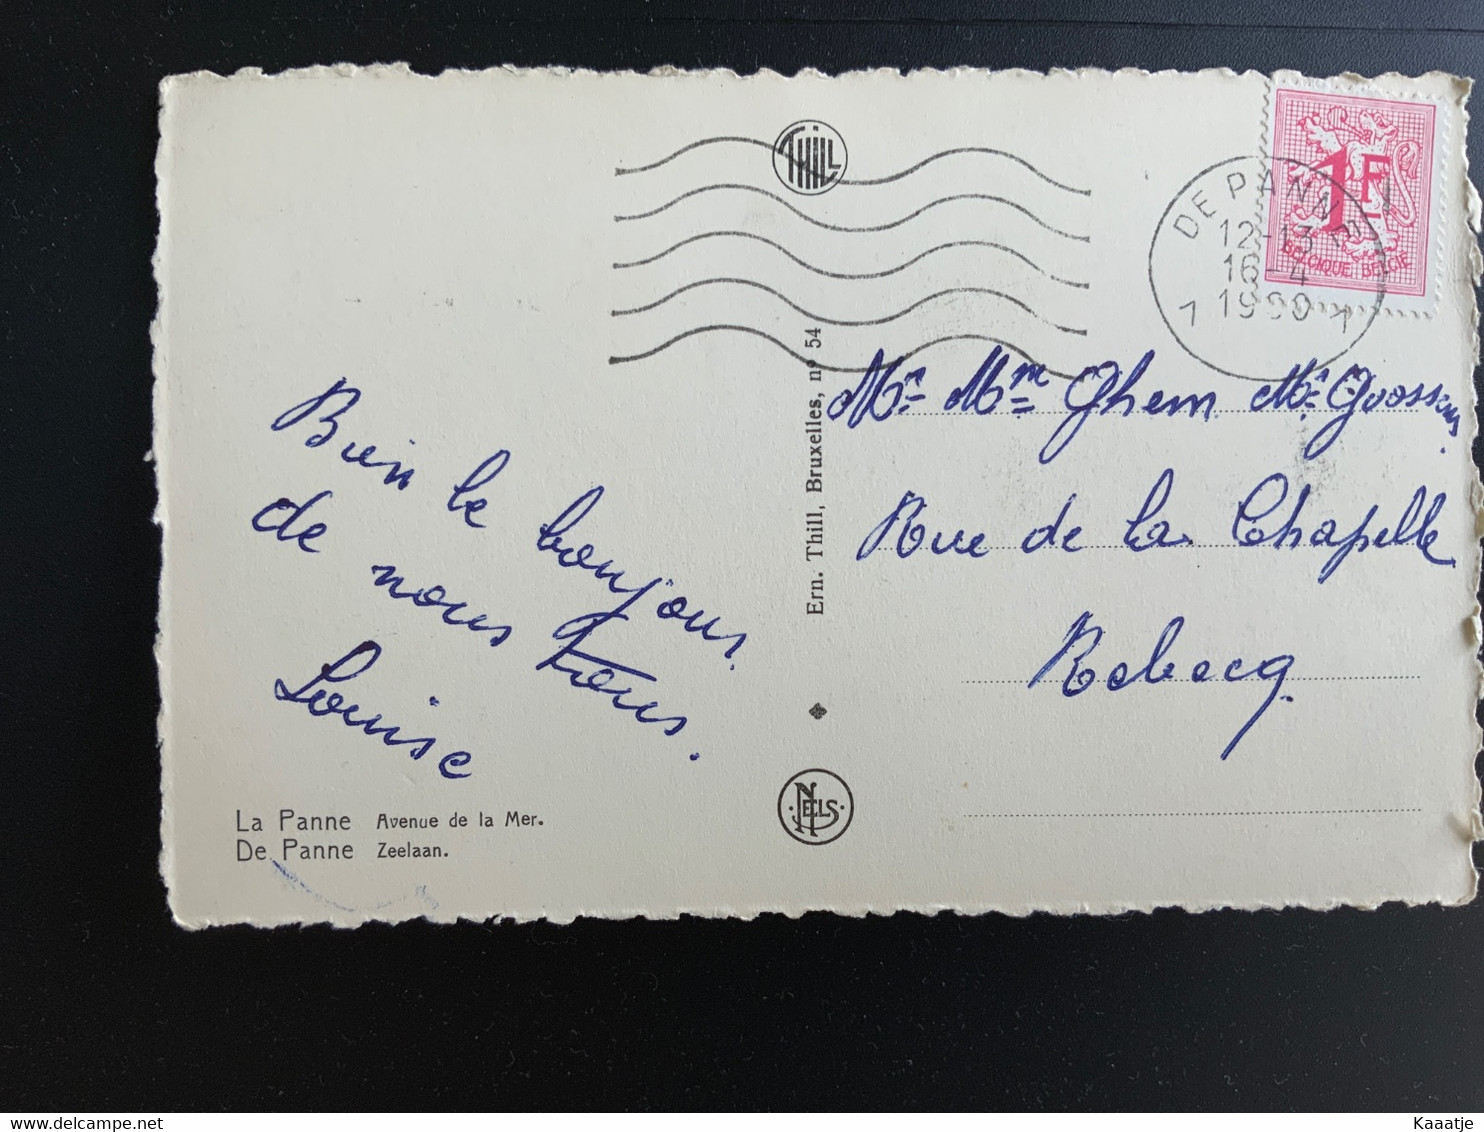 THILL
1F
BELGIQUE-BELGIË
DE PANNE
12-13
16-4
1 1
Bien le bonjour
de nous tous.
Louise
La Panne Avenue de la Mer.
De Panne Zeelaan.
Ern. Thill, Bruxelles, nº 54
NELS
Mr Mme Ghem Mr Goossens
Rue de la Chapelle
Rebecq
Kaaatje